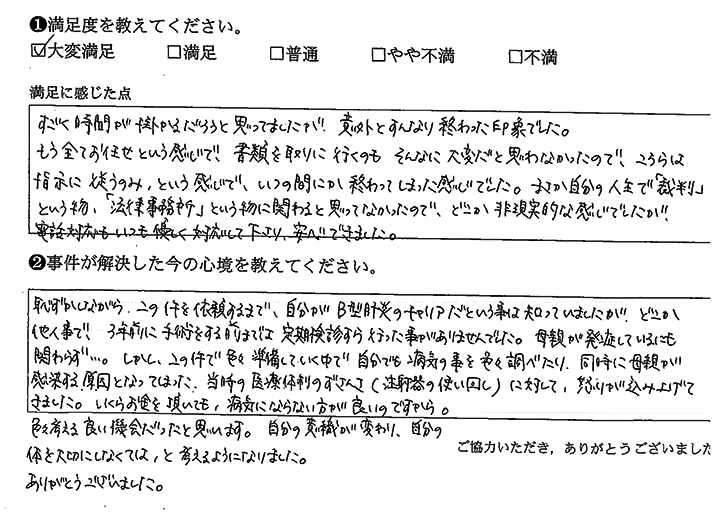 ❶満足度を教えてください。
☑大変満足 □満足 □普通 □やや不満 □不満
満足に感じた点
すごく時間が掛かるだろうと思ってましたが、意外とすんなり終わった印象でした。
もう全てお任せという感じで、書類を取りに行くのもそんなに大変だと思わなかったので、こちらは
指示に従うのみ、という感じで、いつの間にか終わってしまった感じでした。まさか自分の人生で「裁判」
という物、「法律事務所」という物に関わると思ってなかったので、どこか非現実的な感じでしたが、
電話対応もいつも優しく対応して下さり、安心できました。
❷事件が解決した今の心境を教えてください。
恥ずかしながら、この件を依頼するまで、自分がB型肝炎のキャリアだという事は知っていましたが、どこか
他人事で、3年前に手術をする前までは定期検診すら行った事がありませんでした。母親が発症しているにも
関わらず…。しかし、この件で色々準備していく中で自分でも病気の事を色々調べたり、同時に母親が
感染する原因となってしまった、当時の医療体制のずさんさ(注射器の使い回し)に対して、怒りが込み上げて
きました。いくらお金を頂いても、病気にならない方が良いのですから。
色々考える良い機会だったと思います。自分の意識が変わり、自分の
体を大切にしなくては、と考えるようになりました。
ありがとうございました。
ご協力いただき，ありがとうございました